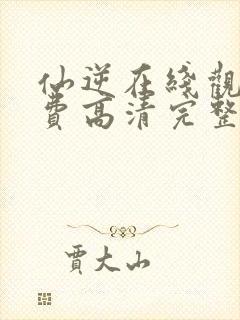 仙逆在綫觀
費高清完整
賈大山